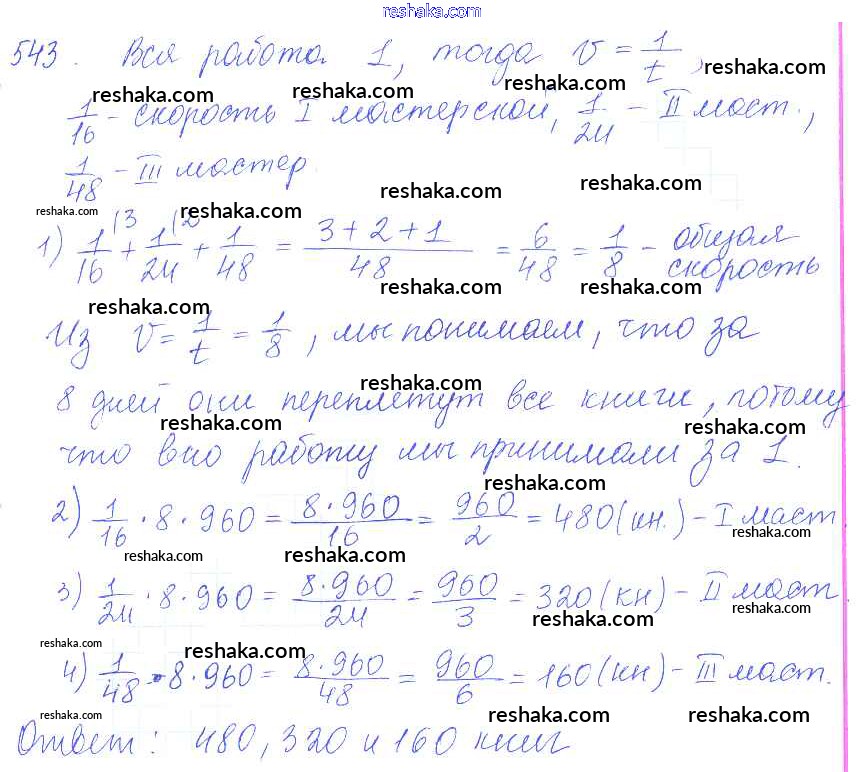 reshaka.com
543. Вся работа 1, тогда v = 1/t,
reshaka.com reshaka.com reshaka.com
1/16 - скорость I мастерской, 1/24 - II маст.,
1/48 - III мастер.
reshaka.com reshaka.com reshaka.com
1) 1/16 (3 + 1/24 (2 + 1/48 = 3+2+1/48 = 6/48 = 1/8 - общая скорость
reshaka.com reshaka.com reshaka.com
Из v = 1/t = 1/8, мы понимаем, что за
reshaka.com
8 дней они переплетут все книги, потому
reshaka.com reshaka.com
что всю работу мы принимали за 1.
reshaka.com
2) 1/16 · 8 · 960 = 8·960/16 = 960/2 = 480 (кн.) - I маст.
reshaka.com reshaka.com reshaka.com
3) 1/24 · 8 · 960 = 8·960/24 = 960/3 = 320 (кн) - II маст.
reshaka.com reshaka.com reshaka.com
reshaka.com
4) 1/48 · 8 · 960 = 8·960/48 = 960/6 = 160 (кн) - III маст.
reshaka.com reshaka.com reshaka.com
Ответ: 480, 320 и 160 книг